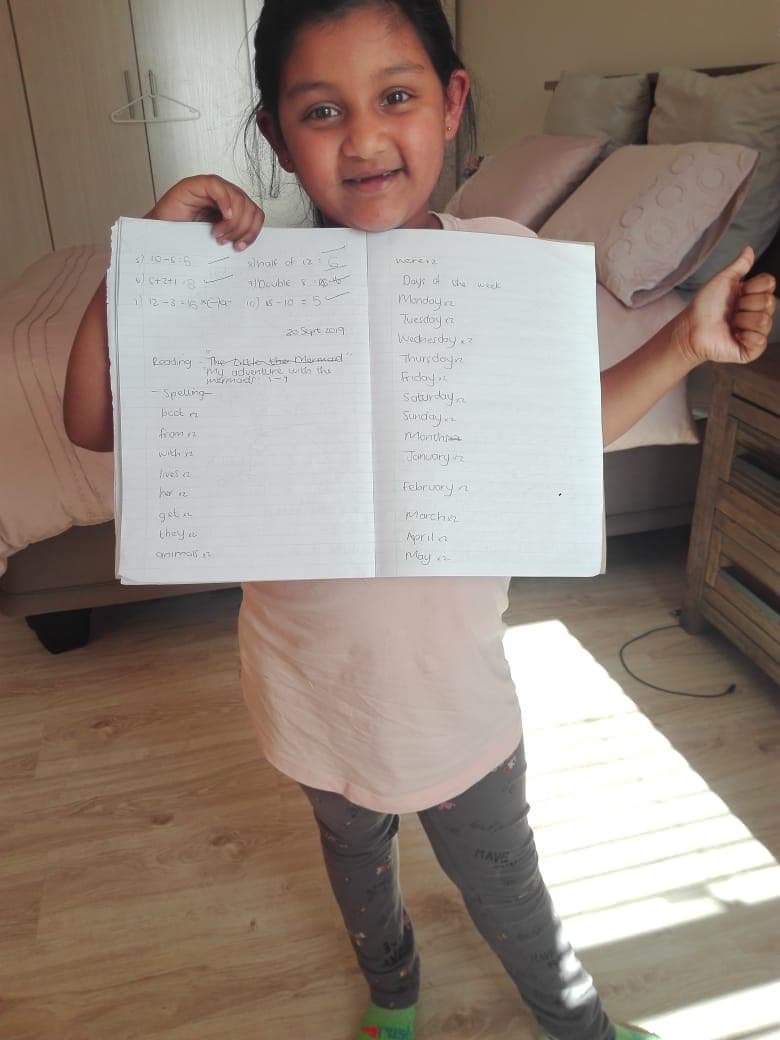 5) 10-5=5
6) 5+2+1=8
8) half of 12 = 6
9) Double 8
10) 15-10=5
20 Sept 2019
Reading - "The Little the Mermaid"
"My adventure with the
mermaids"
- Spelling -
boat x2
from x2
with x2
lives x2
her x2
get x2
they x2
animals x2
were x2
Days of the week
Monday x2
Tuesday x2
Wednesday x2
Thursday x2
Friday x2
Saturday x2
Sunday x2
Months
January x2
February x2
March x2
April x2
May x2